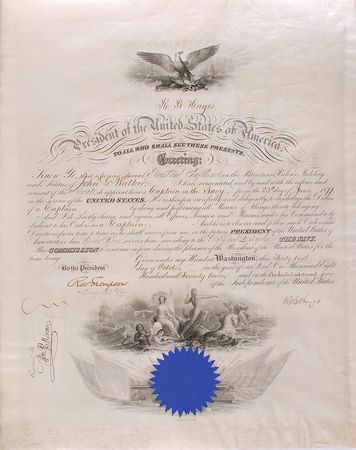 R. B. Hayes,
President of the United States of America,
TO ALL WHO SHALL SEE THESE PRESENTS,
Greeting:
Know Ye, that reposing special Trust and Confidence in the Patriotism, Valor, Fidelity
and Abilities of John G. Walker, I have nominated and by and with the advice and
consent of the Senate, do appoint him a Captain in the Navy, from the June 1877
in the service of the UNITED STATES. He is therefore carefully and diligently to discharge the Duties
of a Captain by doing and performing all manner of things thereunto belonging.
And I do strictly charge and require all Officers, Seamen and Marines under his Command to be
obedient to his Orders as Captain. And he is to observe and follow such Orders and
Directions from time to time as he shall receive from me, or the future PRESIDENT of the United States of
America or his Superior Officer set over him, according to the Rules and Discipline of THE NAVY.
This COMMISSION to continue in force during the pleasure of the President of the United States for the
time being.
Given under my Hand at Washington, this Thirty first
day of October in the year of our Lord One Thousand Eight
Hundred and Seventy Seven and in the One hundred and second year
of the Independence of the United States.
By the President
R W Thompson
R B Hayes